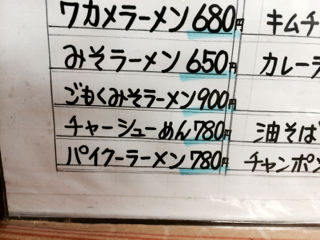 ワカメラーメン 680円 キムチ
みそラーメン 650円 カレーラ
ごもくみそラーメン 900円
チャーシューめん 780円 油そば
パイクーラーメン 780円 チャンポン